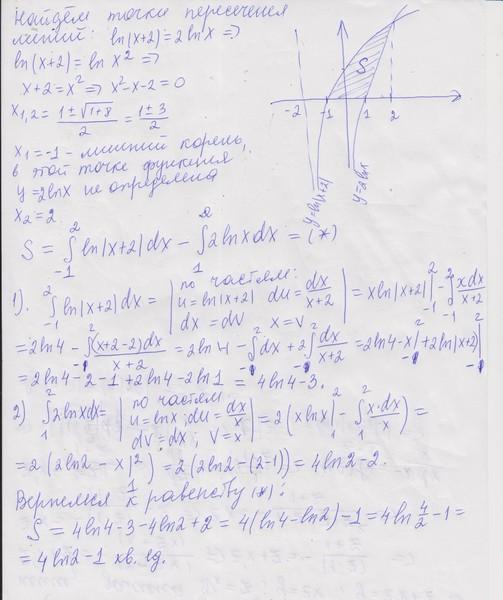 Найдём точки пересечения
линий: ln(x+2)=2lnx ⇒
ln(x+2)=lnx² ⇒
x+2=x² ⇒ x²-x-2=0
x₁,₂ = (1±√(1+8))/2 = (1±3)/2
x₁=-1 - лишний корень,
в этой точке функция
y=2lnx не определена
x₂=2
S
-2 -1 1 2
y=ln(x+2)
y=2lnx
S = ∫₋₁² ln|x+2|dx - ∫₁² 2lnxdx = (*)
1). ∫₋₁² ln|x+2|dx = | по частям: u=ln|x+2| du=dx/(x+2) dx=dv x=v | = xln|x+2| |₋₁² - ∫₋₁² xdx/(x+2)
= 2ln4 - ∫₋₁² (x+2-2)dx/(x+2) = 2ln4 - ∫₋₁² dx + 2∫₋₁² dx/(x+2) = 2ln4-x|₋₁² + 2ln|x+2| |₋₁²
= 2ln4-2-1+2ln4-2ln1 = 4ln4-3.
2) ∫₁² 2lnxdx = | по частям u=lnx; du=dx/x dv=dx; v=x | = 2(xlnx|₁² - ∫₁² x·dx/x) =
= 2(2ln2-x|₁²) = 2(2ln2-(2-1)) = 4ln2-2.
Вернемся к равенству (*):
S = 4ln4-3-4ln2+2 = 4(ln4-ln2)-1 = 4ln 4/2 -1 =
= 4ln2-1 кв. ед.